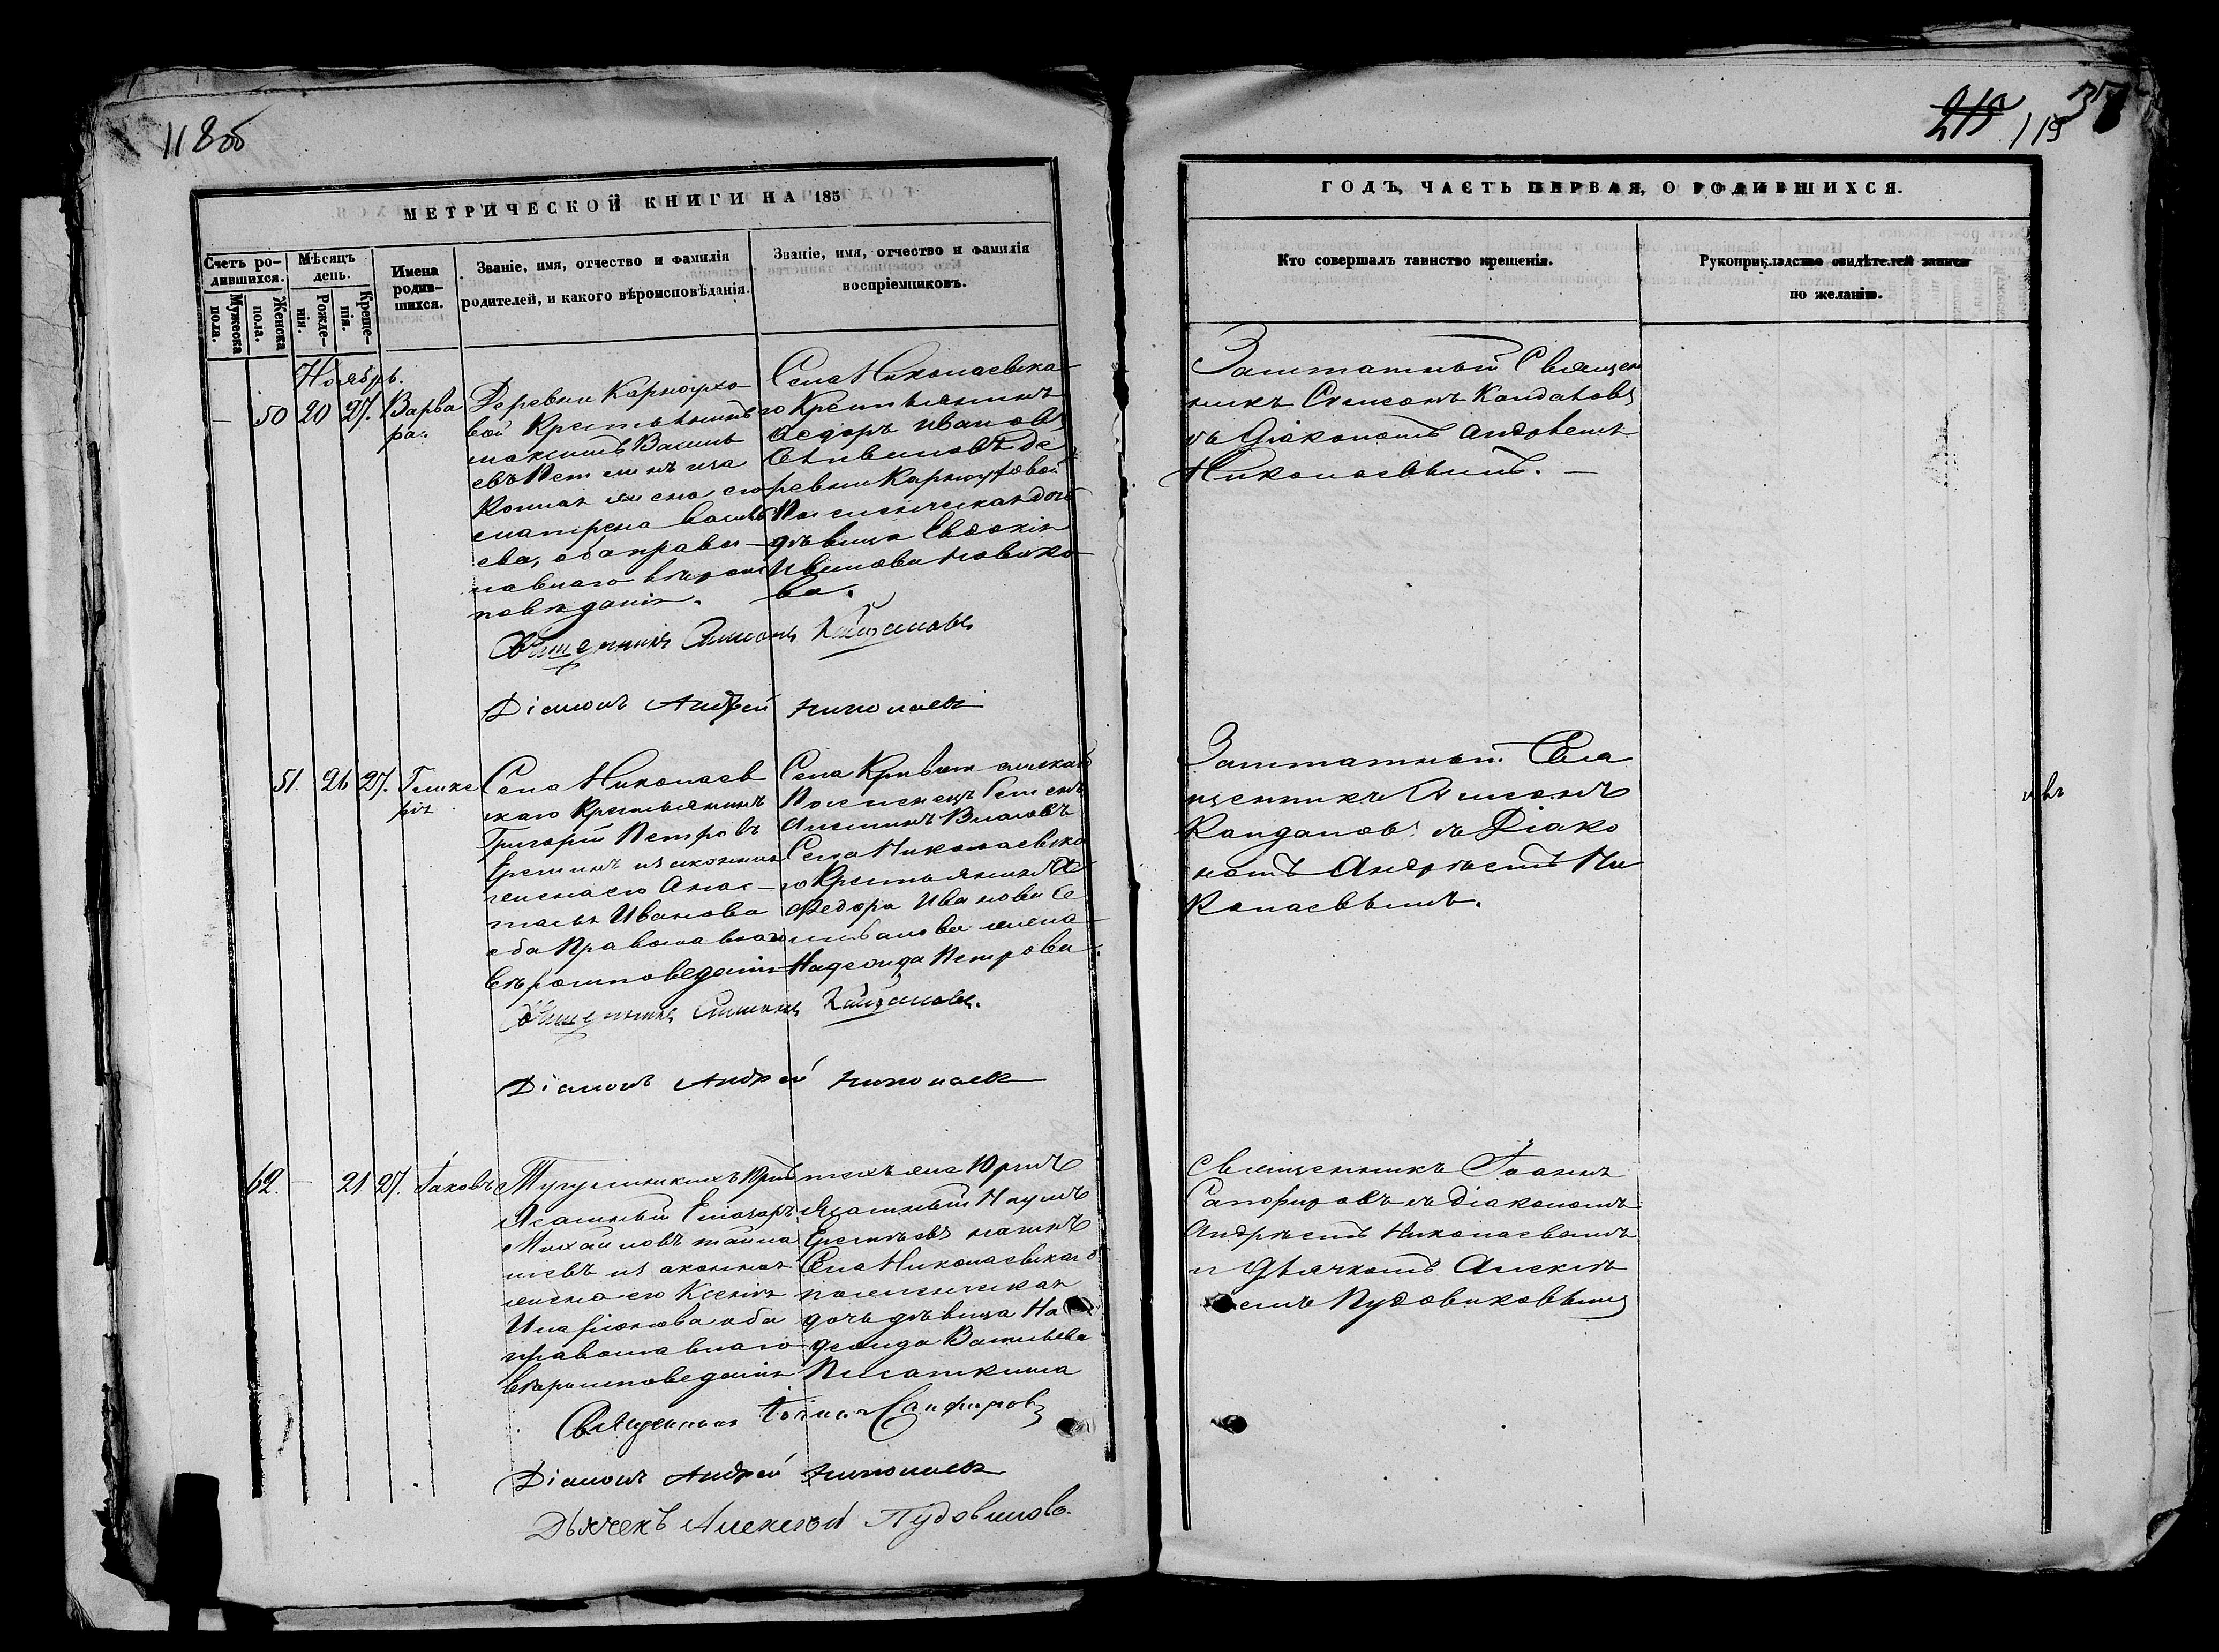 118 об
МЕТРИЧЕСКОЙ КНИГИ НА 185
Счетъ ро-
дившихся.
Мужеска
пола.
Женска
пола.
Мѣсяцъ
день.
Рожде-
нія.
Креще-
нія.
Имена
родив-
шихся.
Званіе, имя, отчество и фамилія
родителей, и какого вѣроисповѣданія.
Званіе, имя, отчество и фамилія
воспріемниковъ.
Ноябрь.
— 50 20 27. Варва
ра.
Деревни
вой Крестьянинъ
Максимъ Василь
евъ
жена его
ева, оба право
славнаго вѣроис
повѣданія.
Села Николаевска
го Крестьянинъ
Ѳедоръ Ивановъ
де
ревни
дочь
дѣвица Евдокія
Иванова Новико
ва.
Священникъ Симеонъ Кайдаловъ
Діаконъ Андрей Николаевъ
51. 26 27. Глике
рія
Села Николаев
скаго Крестьянинъ
Григорій Петровъ
законная
жена его Анас
тасья Иванова
оба Православнаго
Вѣроисповеданія
Села
Власовъ
Села Николаевска
го Крестьянина
Федора Иванова Се
ливанова жена
Надежда Петрова.
Священникъ Симеонъ Кайдаловъ.
Діаконъ Андрей Николаевъ
62. — 21 27. Іаковъ
Ясашный
Михайловъ
евъ и законная
жена его Ксенія
Иларіонова оба
православнаго
вѣроисповеданія
техъ же Юртъ
Ясашный Наумъ
Села Николаевскаго
дочь дѣвица На
дежда Васильева
Священникъ Іоаннъ Сапфировъ
Діаконъ Андрей Николаевъ
Дьячекъ Алексѣй Пудовиковъ.
215 119 37
ГОДЪ, ЧАСТЬ ПЕРВАЯ, О РОДИВШИХСЯ.
Кто совершалъ таинство крещенія.
Рукоприкладство свидѣтелей записи
по желанію.
Заштатный Священ
никъ Симеонъ Кайдаловъ
съ Діакономъ Андреемъ
Николаевымъ. —
Заштатный Свя
щенникъ Симеонъ
Кайдаловъ съ Діако
номъ Андреемъ Ни
колаевымъ.
Священникъ Іоаннъ
Сапфировъ съ діакономъ
Андреемъ Николаевымъ
и Дьячкомъ Алексѣ
емъ Пудовиковымъ